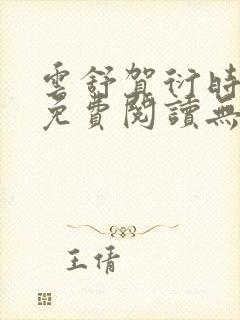 雲舒賀衍時
免費閱讀無
王倩